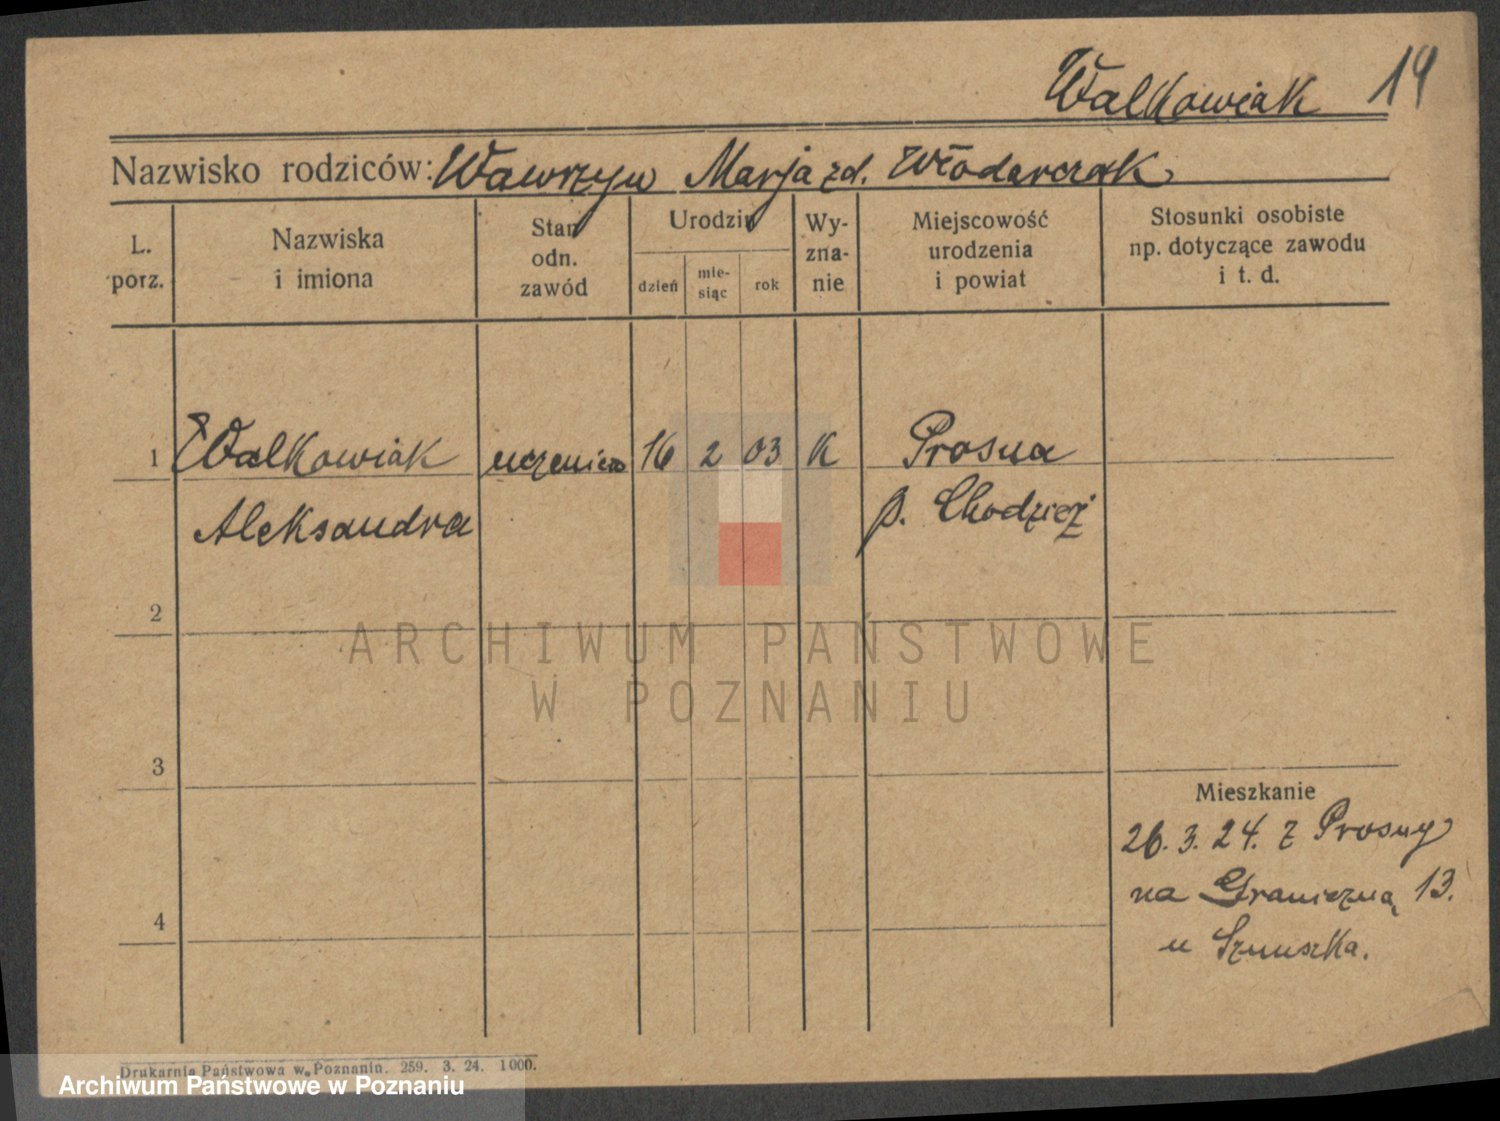 Walkowiak 14
Nazwisko rodziców: Wawrzyn Marja zd. Włodarczak
L. porz.
Nazwiska i imiona
Stan odn. zawód
Urodzin
dzień
mie-siąc
rok
Wy-zna-nie
Miejscowość urodzenia i powiat
Stosunki osobiste np. dotyczące zawodu i t. d.
1 Walkowiak uczenica 16 2 03 K Prosna
Aleksandra p. Chodzież
2
ARCHIWUM PAŃSTWOWE
W POZNANIU
3
Mieszkanie
26. 3. 24. z Prosny
na Graniczną 13.
4
u Sznuszka.
Drukarnia Państwowa w Poznaniu. 259. 3. 24. 1000.
Archiwum Państwowe w Poznaniu